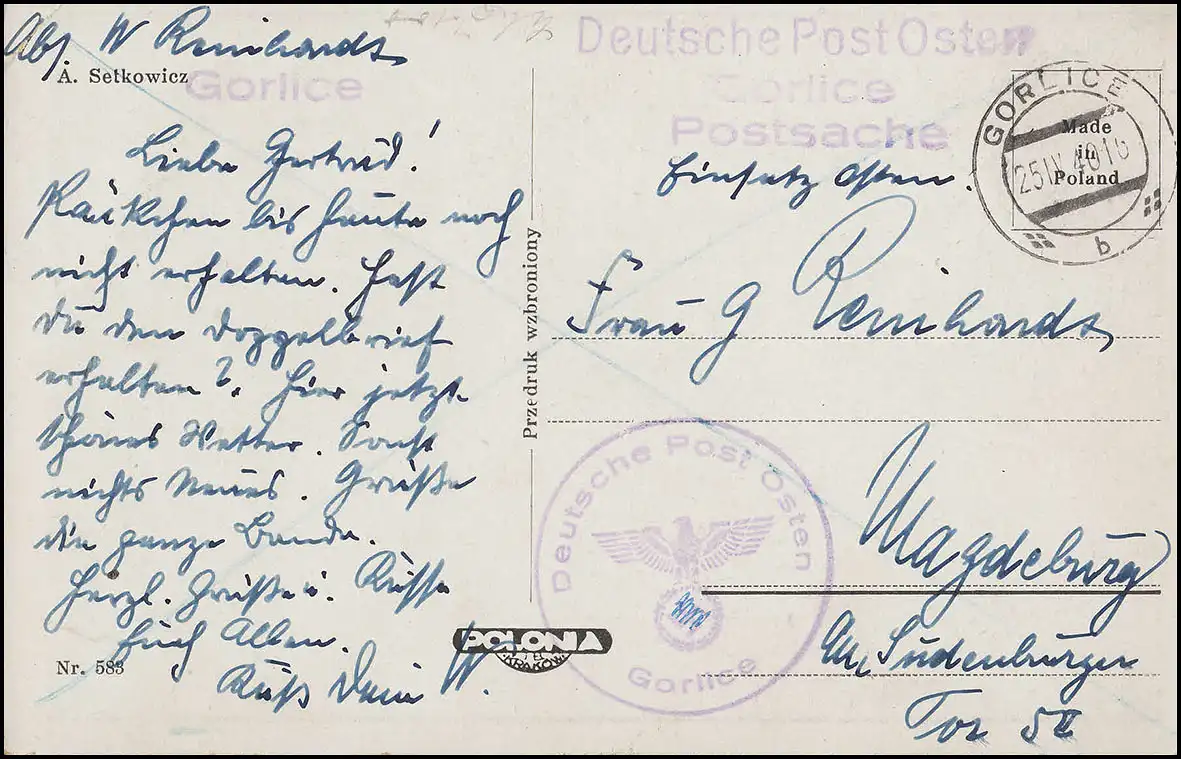 Abs W Reinhardt
A. Setkowicz
Gorlice
Liebe Gertrud!
bis heute noch
nicht erhalten. Hast
Du den Doppelbrief
erhalten? Hier jetzt
schönes Wetter. Sonst
nichts Neues. Grüße
die ganze Bande.
Herzl. Grüße u. Küsse
Euch Allen.
Kuß Dein W.
Nr. 583
Przedruk wzbroniony
POLONIA
KRAKÓW
Deutsche Post Osten
Gorlice
Postsache
Einsatz Osten.
GORLICE
25 IV 40 16
b
Made
in
Poland
Frau G Reinhardt
Magdeburg
Am Sudenburger
Tor 5 II
Deutsche Post Osten
Gorlice